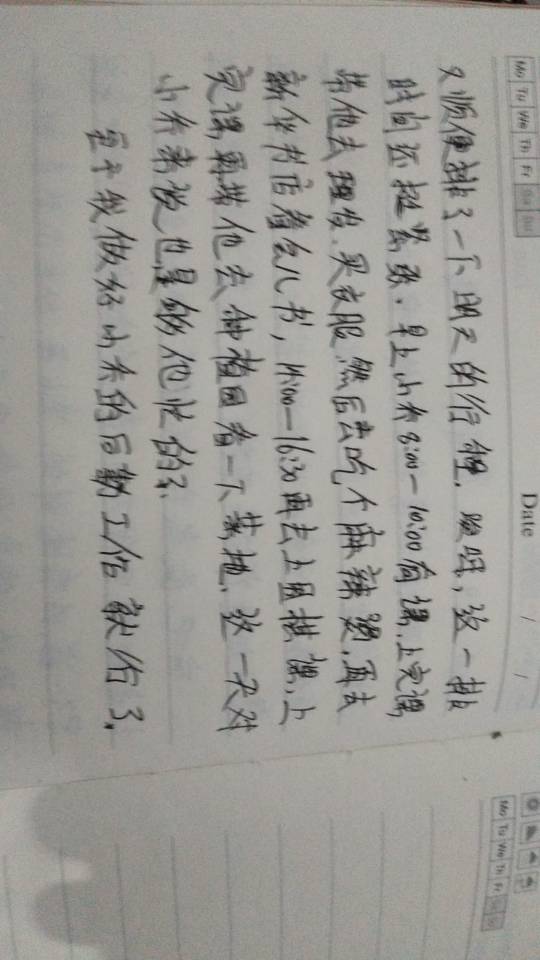 Mo Tu We Th Fr Sa Su
Date / /
又顺便排了一下明天的行程，哎呀，这一排
时间还挺紧张，早上小禾8:00—10:00有课，上完课
带他去理发、买衣服，然后去吃个麻辣烫，再去
新华书店看会儿书，14:00—16:30再去上围棋课，上
完课再带他去种植园看一下菜地，这一天对
小禾来说也是够他忙的了。
至于我做好小禾的后勤工作就行了。
Mo Tu We Th Fr Sa Su